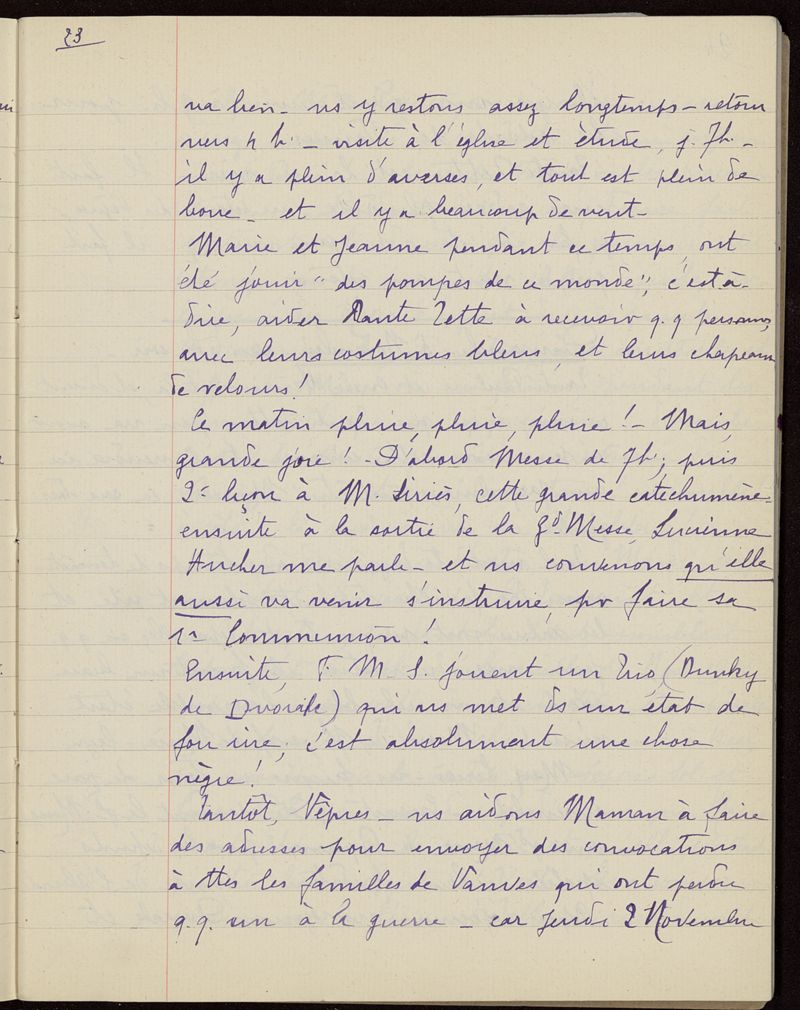 23
va bien – ns y restons assez longtemps – retour
vers 4 h. – visite à l'église et étude, j. 7h. –
il y a plein d'averses, et tout est plein de
boue – et il y a beaucoup de vent –
Marie et Jeanne pendant ce temps, ont
été jouir "des pompes de ce monde", c'est à
dire, aider Tante Zette à recevoir q.q personnes,
avec leurs costumes bleus, et leurs chapeaux
de velours !
Ce matin pluie, pluie, pluie ! – Mais,
grande joie ! – D'abord Messe de 7h ; puis
2e leçon à M. Siriès, cette grande catechumène –
ensuite à la sortie de la Gd Messe, Lucienne
Hucher me parle – et ns convenons qu'elle
aussi va venir s'instruire, pr faire sa
1re Communion !
Ensuite, T. M. S. jouent un Trio (Dunky
de Dvorak) qui ns met ds un état de
fou rire ; c'est absolument une chose
nègre !
Tantôt, Vêpres – ns aidons Maman à faire
des adresses pour envoyer des convocations
à ttes les familles de Vanves qui ont perdu
q.q. un à la guerre – car Jeudi 2 Novembre